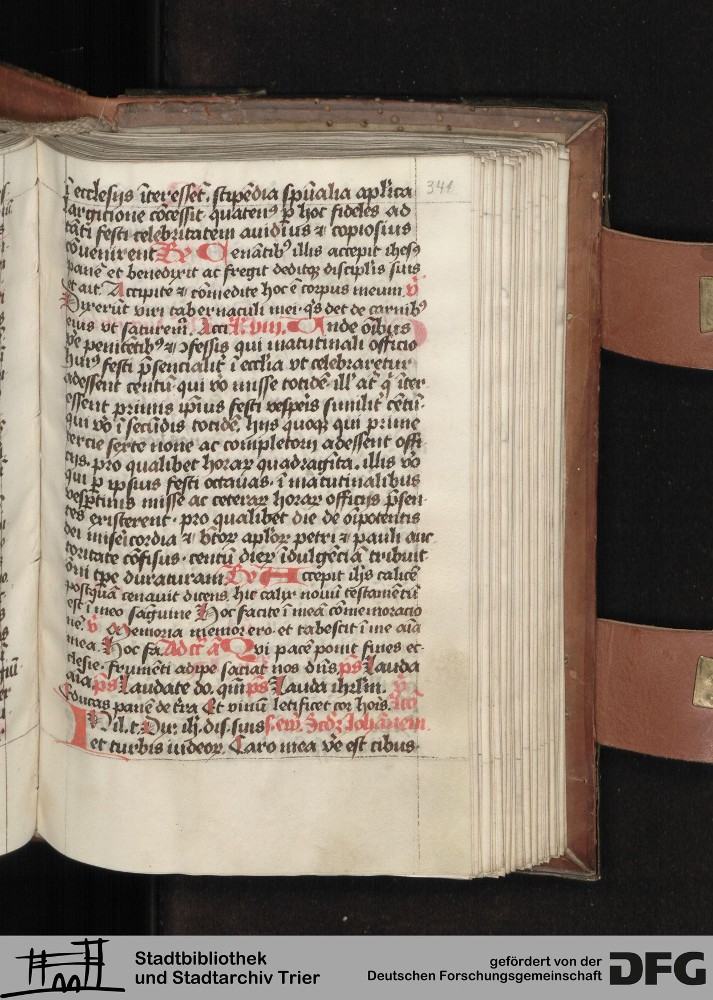 341
ī ecclesijs īteresset. stipēdia spūalia aplica
largitione cōcessit quaten⁹ p hoc fideles ad
tāti festi celebritatem auidius ⁊ copiosius
cōuenirent Rx Cenātib⁹ illis accepit ihesꝰ
panē et benedixit ac fregit deditqꝫ disciplīs suis
et ait. Accipite ⁊ cōmedite hoc ē corpus meum. v̄
Dixerūt viri tabernaculi mei. qⁱs det de carnib⁹
eius vt saturem̄. Acci. l. viij. Unde oībus
vē penitētib⁹ ⁊ ꝯfessis qui matutinali officio
huiꝰ festi p̄sencialit̄ ī ecclīa vt celebraretur
adessent centū qui vo misse totidē. ill' at̄ q̄ īter
essent primis ip̄ius festi vesperis similit̄ cētū.
qui vō ī secūdis totidē. hijs quoqꝫ qui prime
tercie sexte none ac completorij adessent offi
cijs. pro qualibet horaꝝ quadragīta. illis vō
qui p ipsius festi octauas. ī matutinalibus
vesꝑtinis misse ac ceteraꝝ horaꝝ officijs p̄sen
tes existerent. pro qualibet die de oīpotentis
dei misericordia ⁊ btoꝝ aplōꝝ petri ⁊ pauli auc
toritate cōfisus. centū dieꝝ īdulgēciā tribuit
ōni tpe duraturam Rx Accepit ihs calicē
postquā cenauit dicens. hic calix nouū testamentū
est ī meo sāguine Hoc facite ī meā cōmemoracio
nē. v̄ Memoria memor ero. et tabescit ī me aīa
mea. Hoc fa. Ad cā. ā Qui pacē ponit fines ec
clesie. frumēti adipe saciat nos dn̄s ps Lauda
aīa. ps Laudate do. qm̄ ps Lauda ihrlm. v̄
Educas panē de t̄ra Et vinū letificet cor hoīs.
In il. t. Dix. ih̄. dis. suis Scdꝫ Johānem
et turbis iudeoꝝ. Caro mea vē est cibus.
Stadtbibliothek
und Stadtarchiv Trier
gefördert von der
Deutschen Forschungsgemeinschaft
DFG